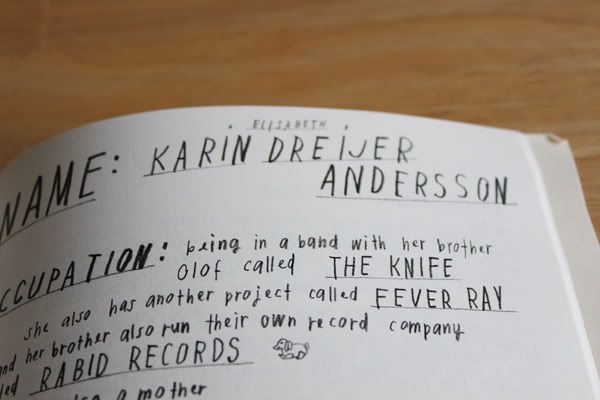 ELISABETH
NAME: KARIN DREIJER
ANDERSSON
CCUPATION: being in a band with her brother
Olof called THE KNIFE
she also has another project called FEVER RAY
and her brother also run their own record company
led RABID RECORDS
a mother